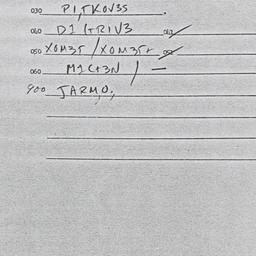 030 PITKOV3S .
040 DI (+RIV3 042
050 XOM35 / XOM35+ 052
060 M1C+3N / —
900 JARMO;